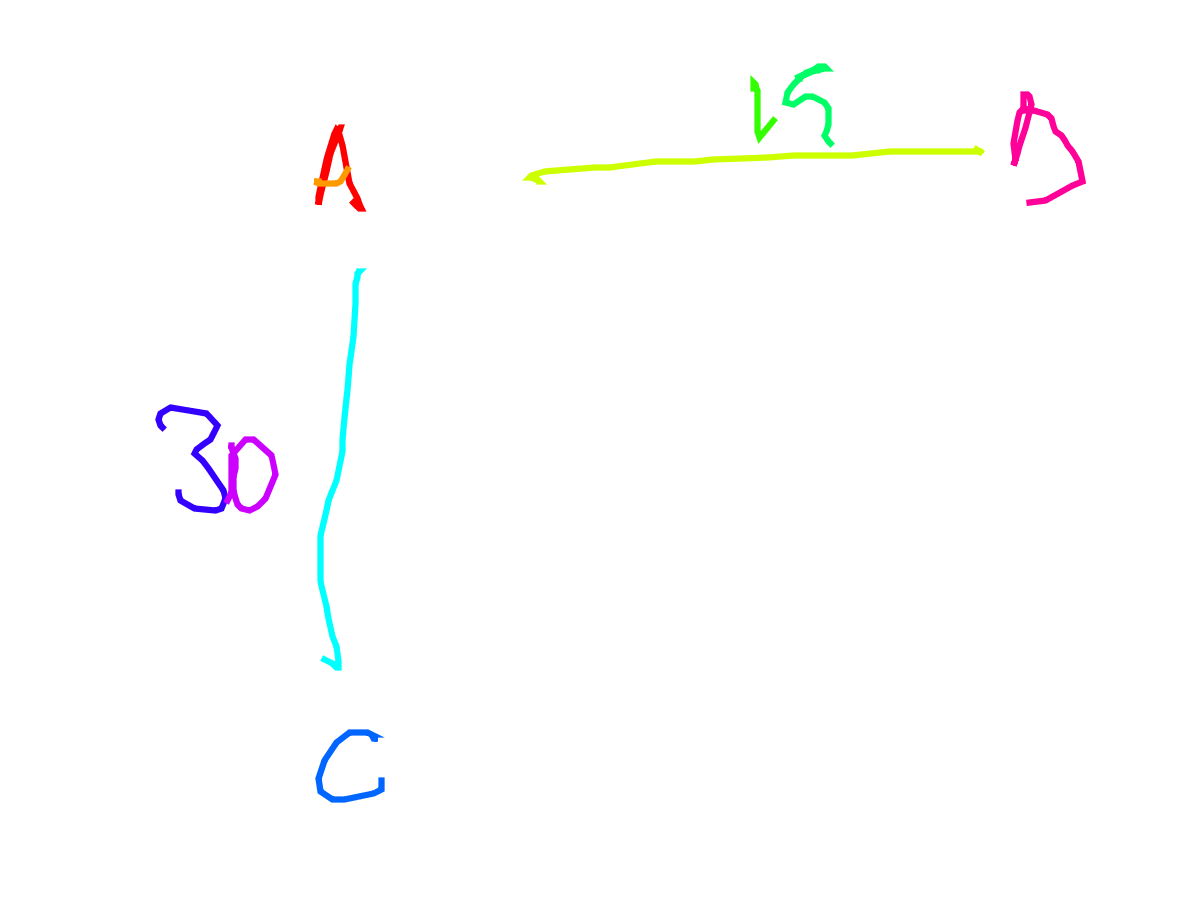 A 15 D
30
C